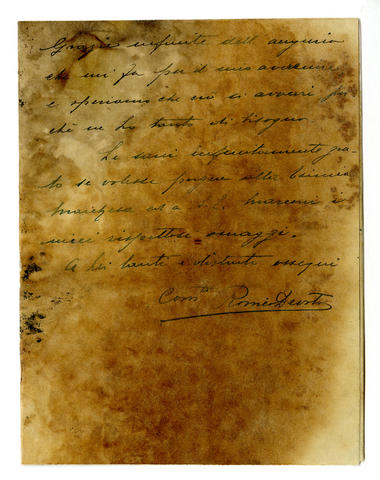 Grazie infinite dell'augurio
che mi fa per il mio avvenire
e speriamo che ciò si avveri per
chè ne ho tanto di bisogno.
Le sarei infinitamente gra-
to se volesse porgere alla
Marchesa ed a Marconi i
miei rispettosi omaggi.
A Lei tanti e distinti ossequi
Com.te Romeo